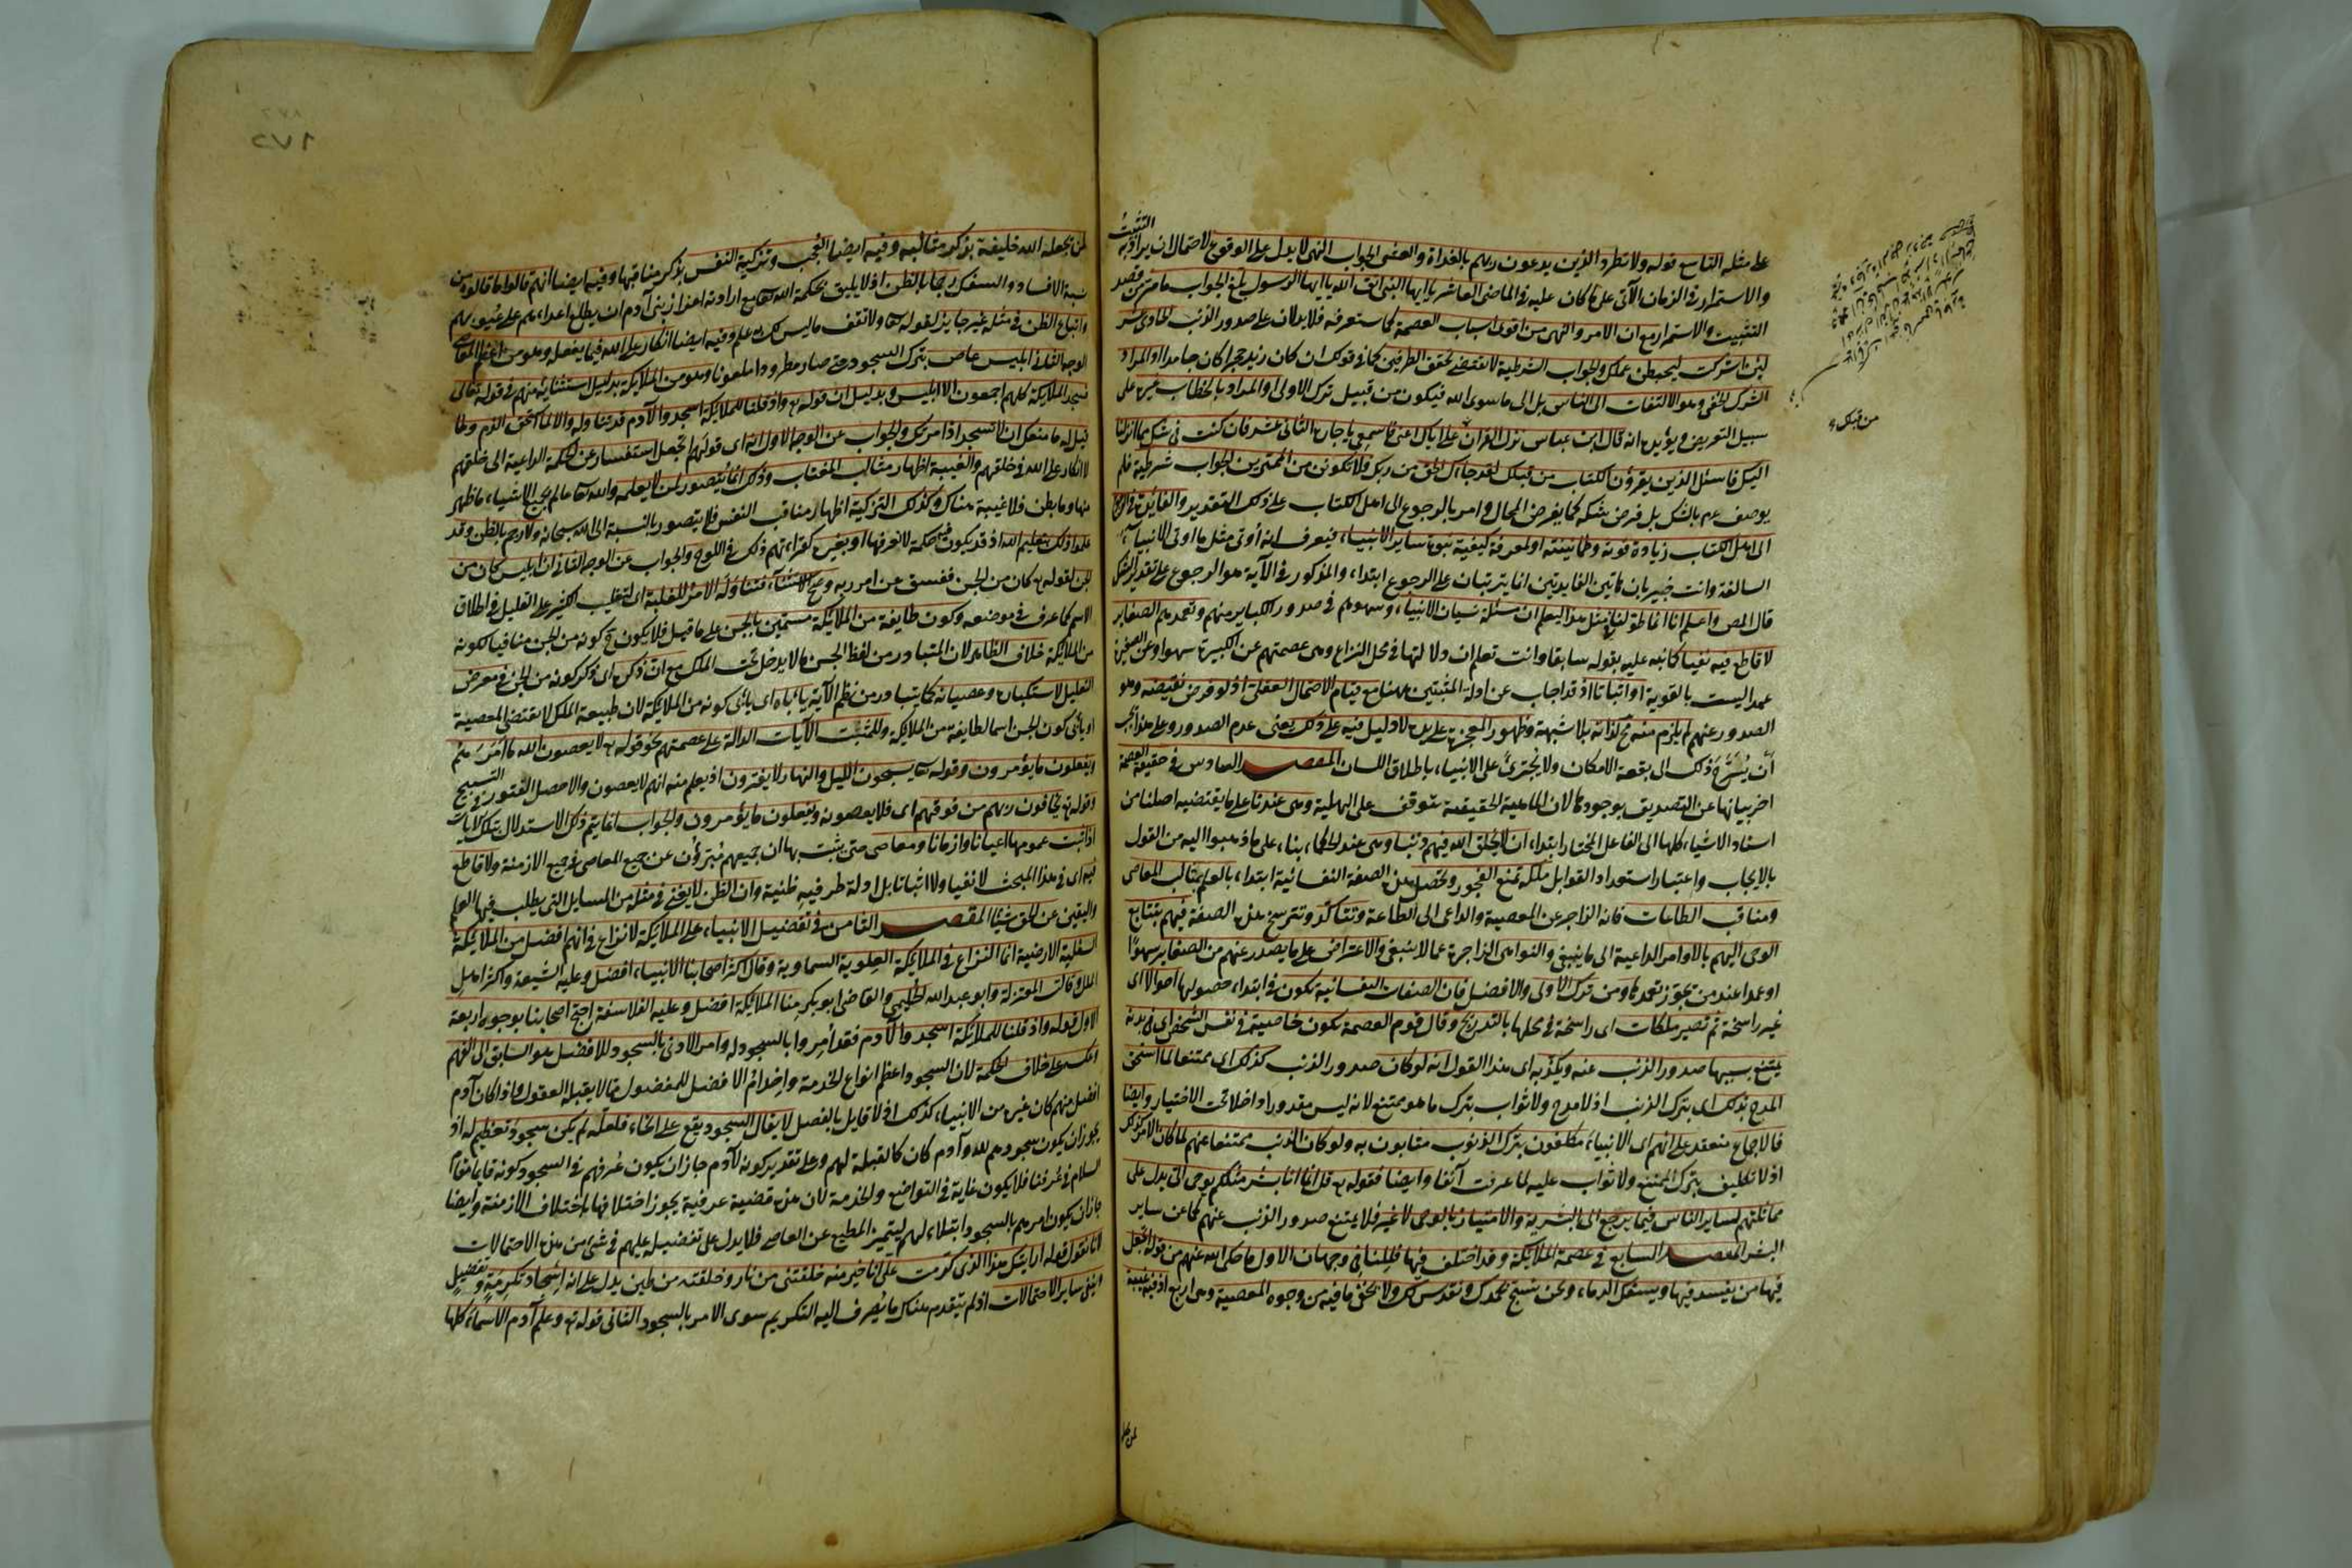 التثبيت
على مثله التاسع قوله ولا تطرد الذين يدعون ربهم بالغداة والعشى الجواب النهى لا يدل على الوقوع لاحتمال ان يراد به
والاستمرار فى الزمان الآتى على ما كان عليه فى الماضى العاشر يا ايها النبى اتق الله يا ايها الرسول بلغ الجواب ما مر من قصد
التثبيت والاستمرار مع ان الامر والنهى من اقوى اسباب العصمة كما ستعرفه فلا يدلان على صدور الذنب الحادى عشر
لئن اشركت ليحبطن عملك والجواب الشرطية لا تقتضى تحقق الطرفين كما فى قولك ان كان زيد حجرا كان جامدا او المراد
الشرك الخفى وهو الالتفات الى الناس بل الى ما سوى الله فيكون من قبيل ترك الاولى او المراد بالخطاب غيره على
سبيل التعريض ويؤيده انه قال ابن عباس نزل القرآن على اياك اعنى فاسمعى يا جاره الثانى عشر فان كنت فى شك مما انزلنا
اليك فاسئل الذين يقرؤن الكتاب من قبلك لقد جاءك الحق من ربك فلا تكونن من الممترين الجواب شرطية فلم
يوصف عم بالشك بل فرض شكه كما يفرض المحال وامر بالرجوع الى اهل الكتاب على ذلك التقدير والفائدة فى الرجوع
الى اهل الكتاب زيادة قوته وطمانينته او لمعرفة كيفية نبوة سائر الانبياء فيعرف انه أوتى مثل ما اوتى الانبياء
السالفة وانت خبير بان هاتين الفايدتين انما يترتبان على الرجوع ابتداء والمذكور فى الآية هو الرجوع على تقدير الشك
قال المص واعلم انا انما طولنا فى مثل هذا ليعلم ان مسئلة نسيان الانبياء وسهوهم فى صدور الكباير منهم وتعمدهم الصغاير
لا قاطع فيه نفيا كما نبه عليه بقوله سابقا وانت تعلم ان دلالتها فى محل النزاع وهى عصمتهم عن الكبيرة سهوا وعن الصغيرة
عمدا ليست بالقوية او اثباتا اذ قد اجاب عن ادلة المثبتين ههنا مع قيام الاحتمال العقلى اذ لو فرض نقيضه وهو
الصدور عنهم لم يلزم منه مح لذاته بلا شبهة وظهور المعجزة على يده لا دليل فيه على ذلك يعنى عدم الصدور وعلى هذا يجب
أن يُسَرَّحَ ذلك الى بقعة الامكان ولا يُجترئَ على الانبياء باطلاق اللسان المقصد السادس فى حقيقة العصمة
اخر بيانها عن التصديق بوجودها لان الماهية الحقيقية متوقف على الهلية وهى عندنا على ما يقتضيه اصلنا من
استناد الاشياء كلها الى الفاعل المختار ابتداء ان لا يخلق الله فيهم ذنبا وهى عند الحكماء بناء على ما ذهبوا اليه من القول
بالايجاب واعتبار استعداد القوابل ملكة تمنع الفجور وتحصل هذه الصفة النفسانية ابتداء بالعلم بمثالب المعاصى
ومناقب الطاعات فانه الزاجر عن المعصية والداعى الى الطاعة وتتأكد وتترسخ هذه الصفة فيهم بتتابع
الوحى اليهم بالاوامر الداعية الى ما ينبغى والنواهى الزاجرة عما لا ينبغى والاعتراض على ما يصدر عنهم من الصغاير سهوًا
او عمدا عند من يجوز تعمدها ومن ترك الاولى والافضل فان الصفات النفسانية تكون فى ابتداء حصولها احوالا اى
غير راسخة ثم تصير ملكات اى راسخة فى محلها بالتدريج وقال قوم العصمة تكون خاصية فى نفس الشخص او فى بدنه
يمتنع بسببها صدور الذنب عنه ويكذبه اى هذا القول انه لو كان صدور الذنب كذلك اى ممتنعا لما استحق
المدح بذلك اى بترك الذنب اذ لا مدح ولا ثواب بترك ما هو ممتنع لانه ليس مقدورا داخلا تحت الاختيار وايضا
فالاجماع منعقد على انهم اى الانبياء مكلفون بترك الذنوب مثابون به ولو كان الذنب ممتنعا عنهم لما كان الامر كذلك
اذ لا تكليف بترك الممتنع ولا ثواب عليه لما عرفت آنفا وايضا فقوله تع قل انما انا بشر مثلكم يوحى الى يدل على
مماثلتهم لساير الناس فيما يرجع الى البشرية والامتياز بالوحى لا غير فلا يمتنع صدور الذنب عنهم كما عن ساير
البشر المقصد السابع فى عصمة الملائكة وقد اختلف فيها فللنافى وجهان الاول ما حكى الله عنهم من قوله اتجعل
فيها من يفسد فيها ويسفك الدماء ونحن نسبح بحمدك ونقدس لك ولا يخفى ما فيه من وجوه المعصية وهى اربع اذ فيه غيبة
من قبلك
لمن يجعله الله خليفة بذكر مثالبه وفيه ايضا العُجب وتزكية النفس بذكر مناقبها وفيه ايضا انهم قالوا ما قالوه من
نسبة الافساد والسفك رجما بالظن اذ لا يليق بحكمة الله تعا مع ارادته اعزاز بنى آدم ان يطلع اعداءهم على عيوبهم
واتباع الظن فى مثله غير جايز لقوله تعا ولا تقف ما ليس لك به علم وفيه ايضا انكار على الله فيما يفعل وهو من اعظم المعاصى
الوجه الثانى ابليس عاص بترك السجود حتى صار مطرودا ملعونا وهو من الملائكة بدليل استثنائه منهم فى قوله تعالى
فسجد الملائكة كلهم اجمعون الا ابليس وبدليل ان قوله تع واذ قلنا للملائكة اسجدوا لآدم قد تناوله والا لما استحق الذم ولما
قيل له ما منعك ان لا تسجد اذ امرتك والجواب عن الوجه الاول انه اى قولهم اتجعل استفسار عن الحكمة الداعية الى خلقهم
لا انكار على الله فى خلقهم والغيبة اظهار مثالب المغتاب وذلك انما يتصور لمن لا يعلمه والله تعا عالم بجميع الاشياء ما ظهر
منها وما بطن فلا غيبة هناك وكذلك التزكية اظهار مناقب النفس فلا يتصور بالنسبة الى الله سبحانه ولا رجم بالظن وقد
علموا ذلك بتعليم الله اذ قد يكون فيه حكمة لا نعرفها او بغيره كقراءتهم ذلك فى اللوح والجواب عن الوجه الثانى ان ابليس كان من
الجن لقوله تع كان من الجن ففسق عن امر ربه وصح الاستثناء فتناوله الامر للغلبة اى لتغليب الكثير على القليل فى اطلاق
الاسم كما عرف فى موضعه وكون طايفة من الملائكة مسمين بالجن على ما قيل فلا يكون ح كونه من الجن منافيا لكونه
من الملائكة خلاف الظاهر لان المتبادر من لفظ الجن ما لا يدخل تحت الملك مع ان ذكره اى ذكر كونه من الجن فى معرض
التعليل لاستكباره وعصيانه كما يتبادر من نظم الآية يأباه اى يأبى كونه من الملائكة لان طبيعة الملك لا تقتضى المعصية
او يأبى كون الجن اسما لطايفة من الملائكة وللمثبت الآيات الدالة على عصمتهم نحو قوله تع لا يعصون الله ما امرهم
ويفعلون ما يؤمرون وقوله تعا يسبحون الليل والنهار لا يفترون اذ يعلم منه انهم لا يعصون والا حصل الفتور فى التسبيح
وقوله تع يخافون ربهم من فوقهم اى فلا يعصونه ويفعلون ما يؤمرون والجواب انما يتم ذلك الاستدلال بتلك الايات
اذا ثبت عمومها اعيانا وازمانا ومعاصى حتى يثبت بها ان جميعهم مُبَرّؤن عن جميع المعاصى فى جميع الازمنة ولا قاطع
فيه اى فى هذا المبحث لا نفيا ولا اثباتا بل ادلة طرفيه ظنية وان الظن لا يغنى فى مثله من المسايل التى يطلب فيها العلم
واليقين عن الحق شيئا المقصد الثامن فى تفضيل الانبياء على الملائكة لا نزاع فى انهم افضل من الملائكة
السفلية الارضية انما النزاع فى الملائكة العلوية السماوية وقال اكثر اصحابنا الانبياء افضل وعليه الشيعة واكثر اهل
الملل وقالت المعتزلة وابو عبد الله الحليمى والقاضى ابو بكر منا الملائكة افضل وعليه الفلاسفة احتج اصحابنا بوجوه اربعة
الاول قوله واذ قلنا للملائكة اسجدوا لآدم فقد أُمِروا بالسجود له وامر الادنى بالسجود للافضل هو السابق الى الفهم
وعكسه على خلاف الحكمة لان السجود اعظم انواع الخدمة واخدام الافضل للمفضول مما لا يقبله العقول واذا كان آدم
افضل منهم كان غيره من الانبياء كذلك اذ لا قايل بالفصل لا يقال السجود يقع على انحاء فلعله لم يكن سجوده تعظيم له اذ
يجوز ان يكون سجودهم لله وآدم كان كالقبلة لهم وعلى تقدير كونه لآدم جاز ان يكون عرفهم فى السجود كونه قايما مقام
السلام فى عُرفنا فلا يكون غاية فى التواضع والخدمة لان هذه قضية عرفية يجوز اختلافها باختلاف الازمنة وايضا
جاز ان يكون امرهم بالسجود ابتلاء لهم ليتميز المطيع عن العاصى فلا يدل على تفضيله عليهم فى شئ من هذه الاحتمالات
انا نقول قوله ارايتك هذا الذى كرمت على انا خير منه خلقتنى من نار وخلقته من طين يدل على انه اسجاد تكرمة وتفضيل
اذ ينفى ساير الاحتمالات اذ لم يتقدم هناك ما يُصرف اليه التكريم سوى الامر بالسجود الثانى قوله تع وعلم آدم الاسماء كلها